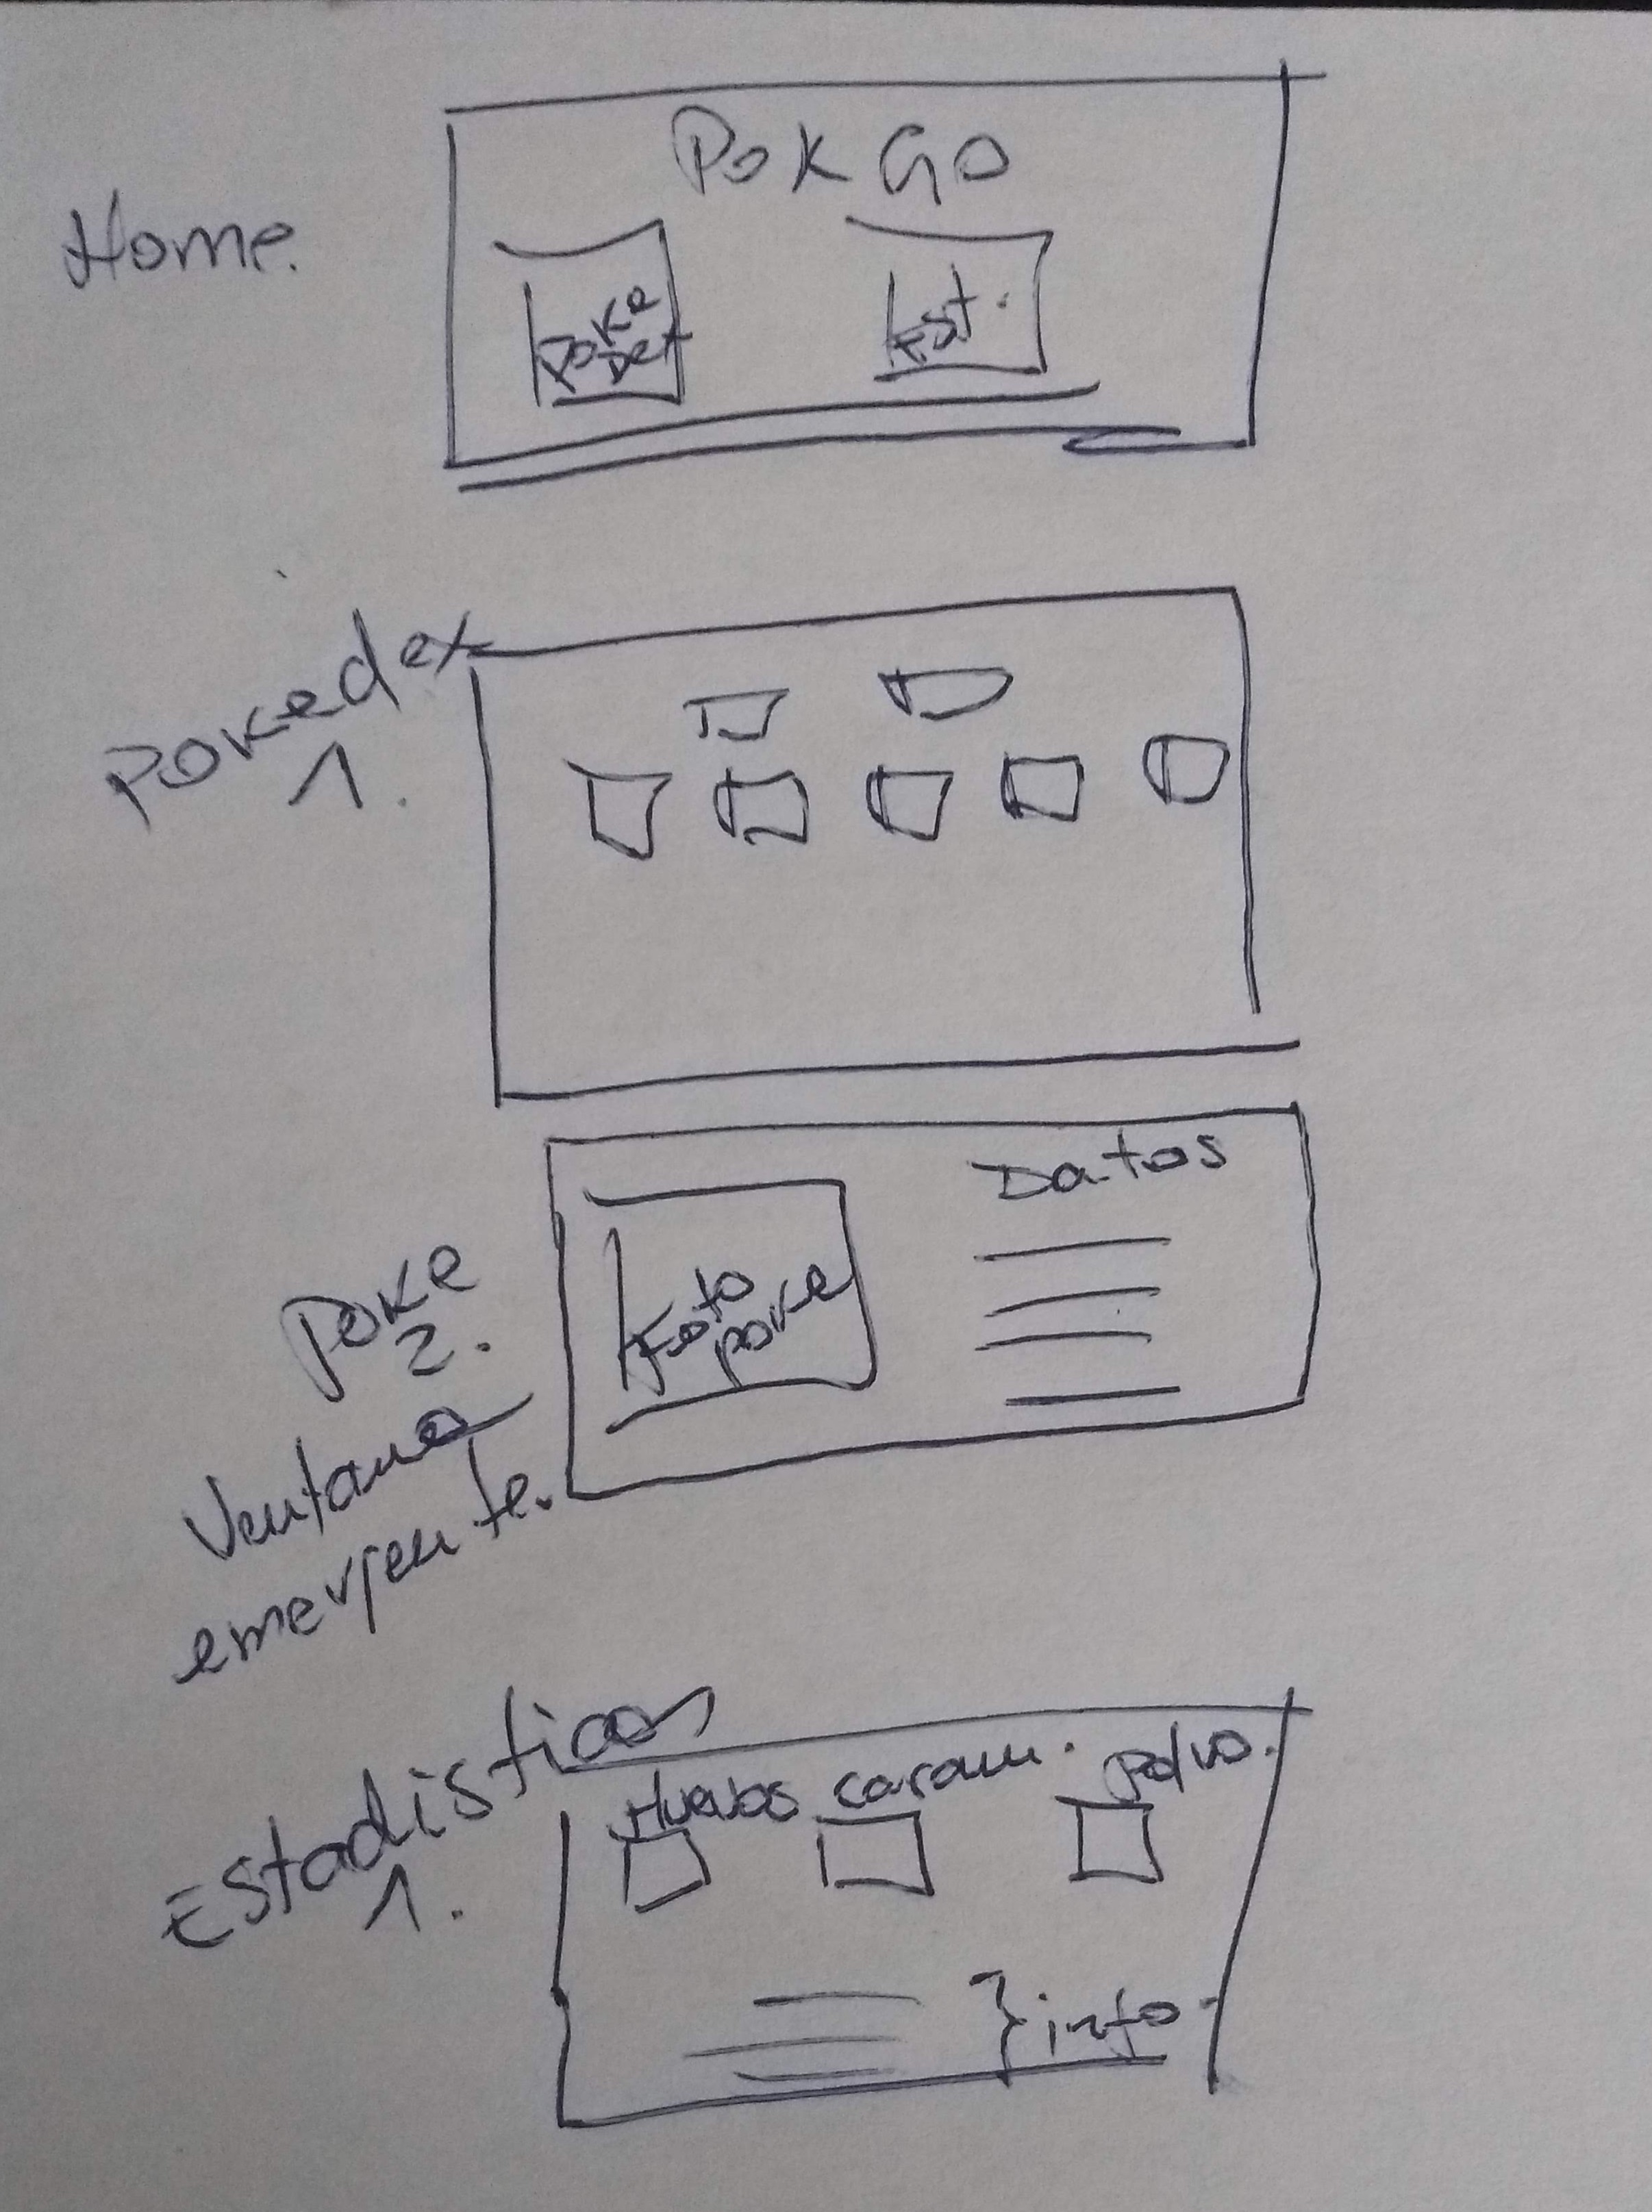 Home.
Pok GO
Poke
Dex
Est.
Pokedex
1.
Poke
2.
Ventana
emergente.
Datos
Foto
poke
Estadisticas
1.
Huevos caram. polvo.
} info.